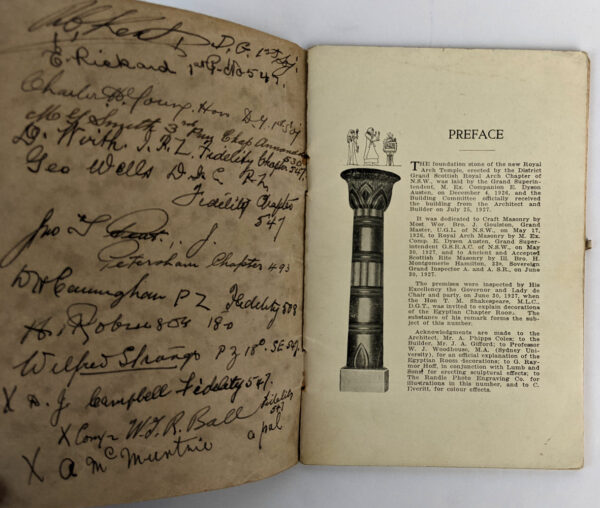 E. Rickard
Charles H. Young. Hon
Smith 3rd Chap
D. Wirth. Fidelity Chapter 547.
Geo Wells R Z
Fidelity Chapter
547
Jno T J.
Petersham Chapter 493
Cunningham P Z Fidelity
180
Wilfred P Z 18°
X D. J. Campbell Fidelity 547.
X Comp W. R. Ball Fidelity
X A McMurtrie
PREFACE
THE foundation stone of the new Royal
Arch Temple, erected by the District
Grand Scottish Royal Arch Chapter of
N.S.W., was laid by the Grand Superin-
tendent, M. Ex. Companion E. Dyson
Austen, on December 4, 1926, and the
Building Committee officially received
the building from the Architect and
Builder on July 25, 1927.
It was dedicated to Craft Masonry by
Most Wor. Bro. J. Goulston, Grand
Master, U.G.L. of N.S.W., on May 17,
1928, to Royal Arch Masonry by M. Ex.
Comp. E. Dyson Austen, Grand Super-
intendent G.S.R.A.C. of N.S.W., on May
30, 1927, and to Ancient and Accepted
Scottish Rite Masonry by Ill. Bro. Jno.
Montgomerie Hamilton, 33o, Sovereign
Grand Inspector A. and A. S.R., on June
20, 1927.
The premises were inspected by His
Excellency the Governor and Lady de
Chair and party, on June 30, 1927, when
the Hon T. M. Shakespeare, M.L.C.,
D.G.T., was invited to explain decorations
of the Egyptian Chapter Room. The
substance of his remark forms the sub-
ject of this number.
Acknowledgments are made to the
Architect, Mr. A. Phipps Coles; to the
Builder, Mr. J. A. Gifford; to Professor
W. J. Woodhouse, M.A. (Sydney Uni-
versity), for an official explanation of the
Egyptian Room decorations; to G. Ray-
mor Hoff, in conjunction with Lumb and
Sons for erecting sculptural effects; to
The Randle Photo Engraving Co. for
illustrations in this number, and to C.
Everitt, for colour effects.